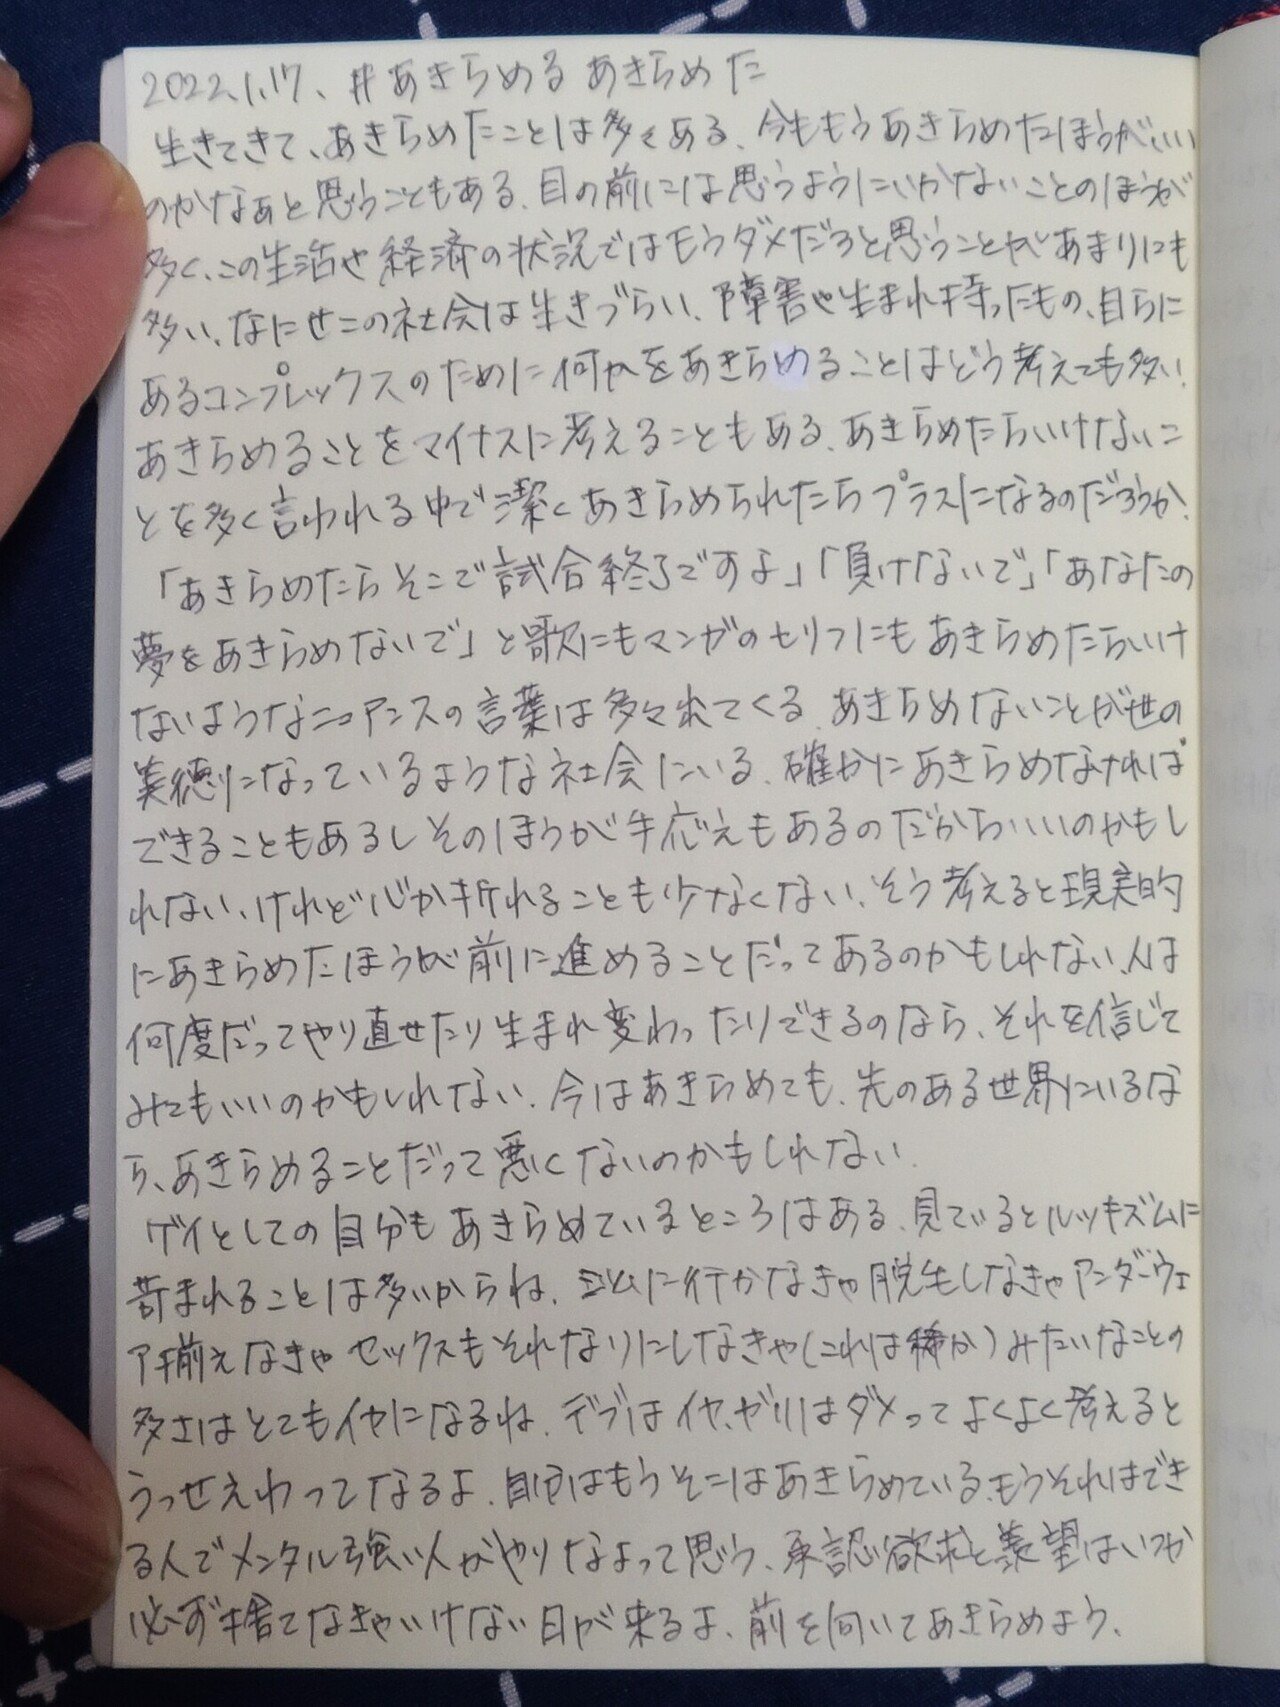 2022.1.17. #あきらめる あきらめた
生きてきて、あきらめたことは多々ある。今ももうあきらめたほうがいい
のかなぁと思うこともある。目の前には思うようにいかないことのほうが
多く、この生活や経済の状況ではもうダメだろと思うことがあまりにも
多い。なにせこの社会は生きづらい。障害や生まれ持ったもの、自らに
あるコンプレックスのために何かをあきらめることはどう考えても多い。
あきらめることをマイナスに考えることもある。あきらめたらいけないこ
とを多く言われる中で潔くあきらめられたらプラスになるのだろうか。
「あきらめたらそこで試合終了ですよ」「負けないで」「あなたの
夢をあきらめないで」と歌にもマンガのセリフにもあきらめたらいけ
ないようなニュアンスの言葉は多々出てくる。あきらめないことが世の
美徳になっているような社会にいる。確かにあきらめなければ
できることもあるしそのほうが手応えもあるのだからいいのかもし
れない。けれど心が折れることも少なくない。そう考えると現実的
にあきらめたほうが前に進めることだってあるのかもしれない。人は
何度だってやり直せたり生まれ変わったりできるのなら、それを信じて
みてもいいのかもしれない。今はあきらめても、先のある世界にいるな
ら、あきらめることだって悪くないのかもしれない。
ゲイとしての自分もあきらめているところはある。見ているとルッキズムに
苛まれることは多いからね。ジムに行かなきゃ脱毛しなきゃアンダーウェ
ア揃えなきゃセックスもそれなりにしなきゃ(これは稀か)みたいなことの
多さはとてもイヤになるね。デブはイヤ、ガリはダメってよくよく考えると
うっせえわってなるよ。自分はもうそこはあきらめている。もうそれはでき
る人でメンタル強い人がやりなよって思う。承認欲求と羨望はいつか
必ず捨てなきゃいけない日が来るよ。前を向いてあきらめよう。